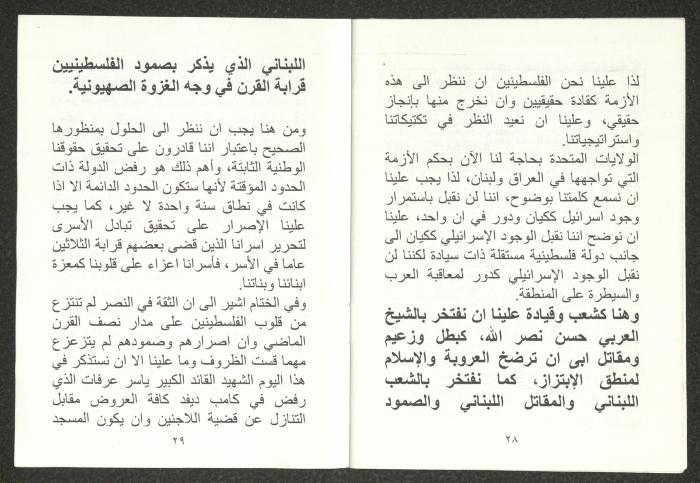 لذا علينا نحن الفلسطينين ان ننظر الى هذه
الأزمة كقادة حقيقيين وان نخرج منها بإنجاز
حقيقي، وعلينا ان نعيد النظر في تكتيكاتنا
واستراتيجياتنا.
الولايات المتحدة بحاجة لنا الآن بحكم الأزمة
التي تواجهها في العراق ولبنان، لذا يجب علينا
ان نسمع كلمتنا بوضوح، اننا لن نقبل باستمرار
وجود اسرائيل ككيان ودور في ان واحد، علينا
ان نوضح اننا نقبل الوجود الإسرائيلي ككيان الى
جانب دولة فلسطينية مستقلة ذات سيادة لكننا لن
نقبل الوجود الإسرائيلي كدور لمعاقبة العرب
والسيطرة على المنطقة.
وهنا كشعب وقيادة علينا ان نفتخر بالشيخ
العربي حسن نصر الله، كبطل وزعيم
ومقاتل ابى ان ترضخ العروبة والإسلام
لمنطق الإبتزاز، كما نفتخر بالشعب
اللبناني والمقاتل اللبناني والصمود
٢٨
اللبناني الذي يذكر بصمود الفلسطينيين
قرابة القرن في وجه الغزوة الصهيونية.
ومن هنا يجب ان ننظر الى الحلول بمنظورها
الصحيح باعتبار اننا قادرون على تحقيق حقوقنا
الوطنية الثابتة، وأهم ذلك هو رفض الدولة ذات
الحدود المؤقتة لأنها ستكون الحدود الدائمة الا اذا
كانت في نطاق سنة واحدة لا غير، كما يجب
علينا الإصرار على تحقيق تبادل الأسرى
لتحرير اسرانا الذين قضى بعضهم قرابة الثلاثين
عاما في الأسر، فأسرانا اعزاء على قلوبنا كمعزة
ابنائنا وبناتنا.
وفي الختام اشير الى ان الثقة في النصر لم تنتزع
من قلوب الفلسطينين على مدار نصف القرن
الماضي وان اصرارهم وصمودهم لم يتزعزع
مهما قست الظروف وما علينا الا ان نستذكر في
هذا اليوم الشهيد القائد الكبير ياسر عرفات الذي
رفض في كامب ديفد كافة العروض مقابل
التنازل عن قضية اللاجئين وان يكون المسجد
٢٩